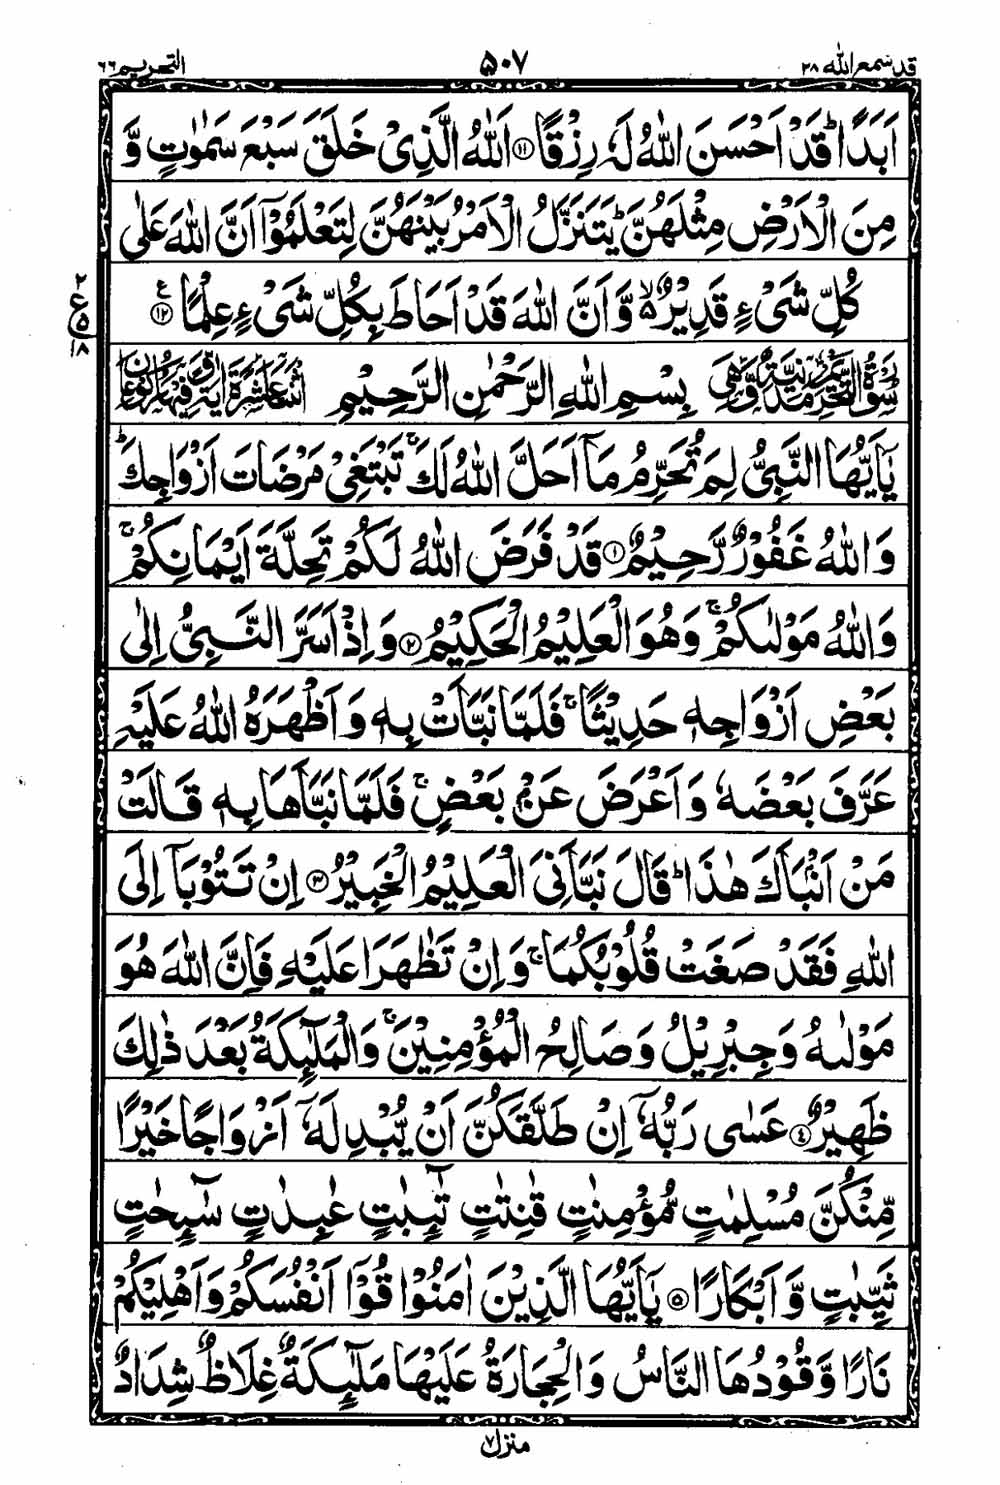 قد سمع الله ٢٨
۵۰۷
التحريم ٦٦
اَبَدًا ؕ قَدْ اَحْسَنَ اللّٰهُ لَهٗ رِزْقًا ۝۱۱ اَللّٰهُ الَّذِیْ خَلَقَ سَبْعَ سَمٰوٰتٍ وَّ
مِنَ الْاَرْضِ مِثْلَهُنَّ ؕ یَتَنَزَّلُ الْاَمْرُ بَیْنَهُنَّ لِتَعْلَمُوْۤا اَنَّ اللّٰهَ عَلٰی
كُلِّ شَیْءٍ قَدِیْرٌ ۙ۬ وَّ اَنَّ اللّٰهَ قَدْ اَحَاطَ بِكُلِّ شَیْءٍ عِلْمًا ۝۱۲ ع
٢
ع ۵
١٨
سُوْرَةُ التَّحْرِيْمِ مَدَنِيَّةٌ وَّهِيَ بِسْمِ اللّٰهِ الرَّحْمٰنِ الرَّحِیْمِ اثْنَتَا عَشْرَةَ اٰيَةً وَّفِيْهَا رُكُوْعَانِ
یٰۤاَیُّهَا النَّبِیُّ لِمَ تُحَرِّمُ مَاۤ اَحَلَّ اللّٰهُ لَكَ ۚ تَبْتَغِیْ مَرْضَاتَ اَزْوَاجِكَ ؕ
وَ اللّٰهُ غَفُوْرٌ رَّحِیْمٌ ۝۱ قَدْ فَرَضَ اللّٰهُ لَكُمْ تَحِلَّةَ اَیْمَانِكُمْ ۚ
وَ اللّٰهُ مَوْلٰىكُمْ ۚ وَ هُوَ الْعَلِیْمُ الْحَكِیْمُ ۝۲ وَ اِذْ اَسَرَّ النَّبِیُّ اِلٰی
بَعْضِ اَزْوَاجِهٖ حَدِیْثًا ۚ فَلَمَّا نَبَّاَتْ بِهٖ وَ اَظْهَرَهُ اللّٰهُ عَلَیْهِ
عَرَّفَ بَعْضَهٗ وَ اَعْرَضَ عَنْۢ بَعْضٍ ۚ فَلَمَّا نَبَّاَهَا بِهٖ قَالَتْ
مَنْ اَنْۢبَاَكَ هٰذَا ؕ قَالَ نَبَّاَنِیَ الْعَلِیْمُ الْخَبِیْرُ ۝۳ اِنْ تَتُوْبَاۤ اِلَی
اللّٰهِ فَقَدْ صَغَتْ قُلُوْبُكُمَا ۚ وَ اِنْ تَظٰهَرَا عَلَیْهِ فَاِنَّ اللّٰهَ هُوَ
مَوْلٰىهُ وَ جِبْرِیْلُ وَ صَالِحُ الْمُؤْمِنِیْنَ ۚ وَ الْمَلٰٓىِٕكَةُ بَعْدَ ذٰلِكَ
ظَهِیْرٌ ۝۴ عَسٰی رَبُّهٗۤ اِنْ طَلَّقَكُنَّ اَنْ یُّبْدِلَهٗۤ اَزْوَاجًا خَیْرًا
مِّنْكُنَّ مُسْلِمٰتٍ مُّؤْمِنٰتٍ قٰنِتٰتٍ تٰٓىِٕبٰتٍ عٰبِدٰتٍ سٰٓىِٕحٰتٍ
ثَیِّبٰتٍ وَّ اَبْكَارًا ۝۵ یٰۤاَیُّهَا الَّذِیْنَ اٰمَنُوْا قُوْۤا اَنْفُسَكُمْ وَ اَهْلِیْكُمْ
نَارًا وَّ قُوْدُهَا النَّاسُ وَ الْحِجَارَةُ عَلَیْهَا مَلٰٓىِٕكَةٌ غِلَاظٌ شِدَادٌ
منزل ٧